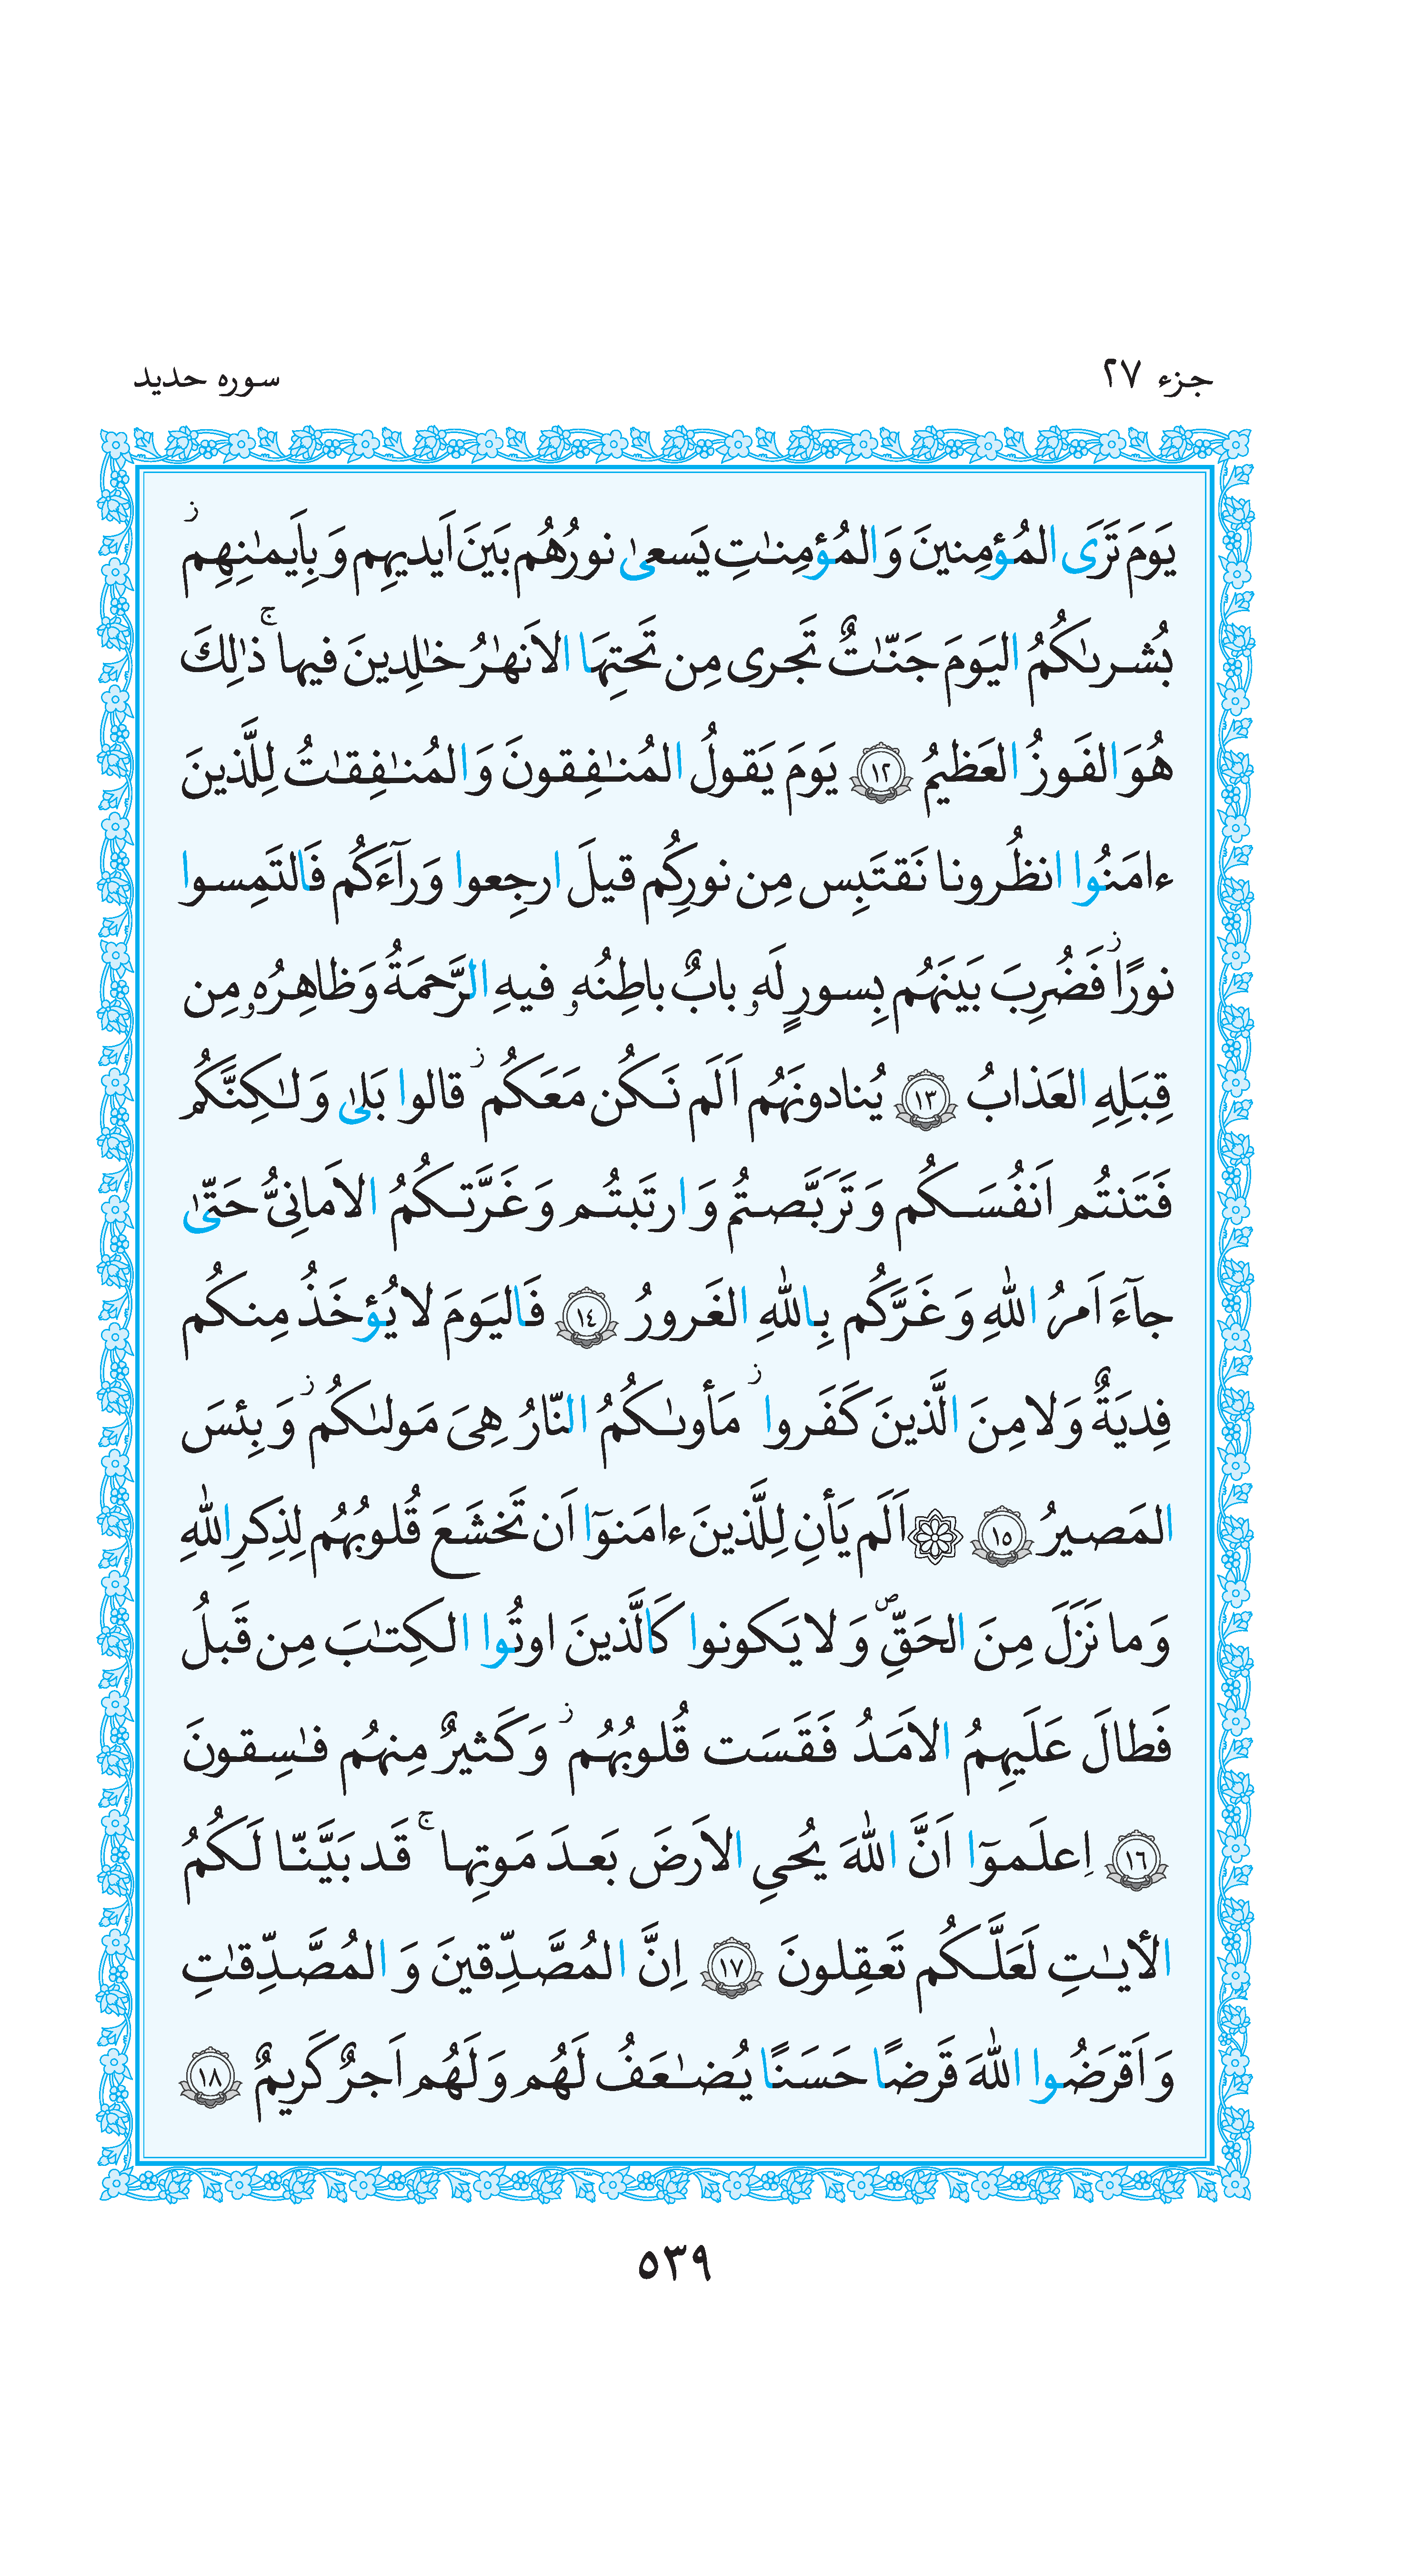 جزء ٢٧
سوره حدید
یَومَ تَرَی المُؤمِنینَ وَ المُؤمِنـٰتِ یَسعیٰ نورُهُم بَینَ اَیدیهِم وَ بِاَیمـٰنِهِم ۖز
بُشرىٰكُمُ الیَومَ جَنّـٰتٌ تَجری مِن تَحتِهَا الاَنهـٰرُ خـٰلِدینَ فیها ۚ ذٰلِكَ
هُوَ الفَوزُ العَظیمُ ﴿١٢﴾ یَومَ یَقولُ المُنـٰفِقونَ وَ المُنـٰفِقـٰتُ لِلَّذینَ
ءامَنُوا انظُرونا نَقتَبِس مِن نورِكُم قیلَ ارجِعوا وَرآءَكُم فَالتَمِسوا
نورًا ز فَضُرِبَ بَینَهُم بِسورٍ لَهو بابٌ باطِنُهو فیهِ الرَّحمَةُ وَ ظاهِرُهو مِن
قِبَلِهِ العَذابُ ﴿١٣﴾ یُنادونَهُم اَلَم نَكُن مَعَكُم ز قالوا بَلیٰ وَ لـٰكِنَّكُم
فَتَنتُم اَنفُسَكُم وَ تَرَبَّصتُم وَ ارتَبتُم وَ غَرَّتكُمُ الاَمانِیُّ حَتّیٰ
جآءَ اَمرُ اللّٰهِ وَ غَرَّكُم بِاللّٰهِ الغَرورُ ﴿١٤﴾ فَالیَومَ لا یُؤخَذُ مِنكُم
فِدیَةٌ وَ لا مِنَ الَّذینَ كَفَروا ز مَأوىٰكُمُ النّارُ هِیَ مَولىٰكُم ز وَ بِئسَ
المَصیرُ ﴿١٥﴾ ۞ اَلَم یَأنِ لِلَّذینَ ءامَنوٓا اَن تَخشَعَ قُلوبُهُم لِذِكرِ اللّٰهِ
وَ ما نَزَلَ مِنَ الحَقِّ ص وَ لا یَكونوا كَالَّذینَ اوتُوا الكِتـٰبَ مِن قَبلُ
فَطالَ عَلَیهِمُ الاَمَدُ فَقَسَت قُلوبُهُم ز وَ كَثیرٌ مِنهُم فـٰسِقونَ
﴿١٦﴾ اِعلَموٓا اَنَّ اللّٰهَ یُحیِی الاَرضَ بَعدَ مَوتِها ۚ قَد بَیَّنّا لَكُمُ
الأیـٰتِ لَعَلَّكُم تَعقِلونَ ﴿١٧﴾ اِنَّ المُصَّدِّقینَ وَ المُصَّدِّقـٰتِ
وَ اَقرَضُوا اللّٰهَ قَرضًا حَسَنًا یُضـٰعَفُ لَهُم وَ لَهُم اَجرٌ كَریمٌ ﴿١٨﴾
٥٣٩